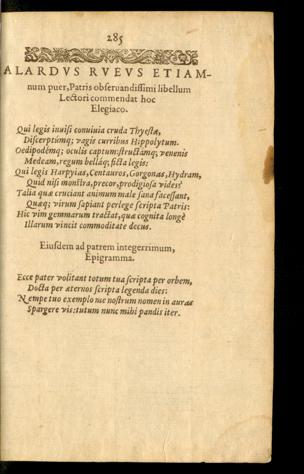 285
ALARDVS RVEVS ETIAM-
num puer, Patris obseruandissimi libellum
Lectori commendat hoc
Elegiaco.
Qui legis inuisi conuiuia cruda Thyestæ,
Discerptúmq; vagis curribus Hippolytum.
Oedipodémq; oculis captum: structámq; venenis
Medeam, regum bellâq; ficta legis:
Qui legis Harpyias, Centauros, Gorgonas, Hydram,
Quid nisi monstra, precor, prodigiosa vides?
Talia quæ cruciant animum male sana facessant,
Quæq; virum sapiant perlege scripta Patris:
Hic vim gemmarum tractat, quæ cognita longè
Illarum vincit commoditate decus.
Eiusdem ad patrem integerrimum,
Epigramma.
Ecce pater volitant totum tua scripta per orbem,
Docta per æternos scripta legenda dies:
Nempe tuo exemplo me nostrum nomen in auras
Spargere vis: tutum nunc mihi pandis iter.